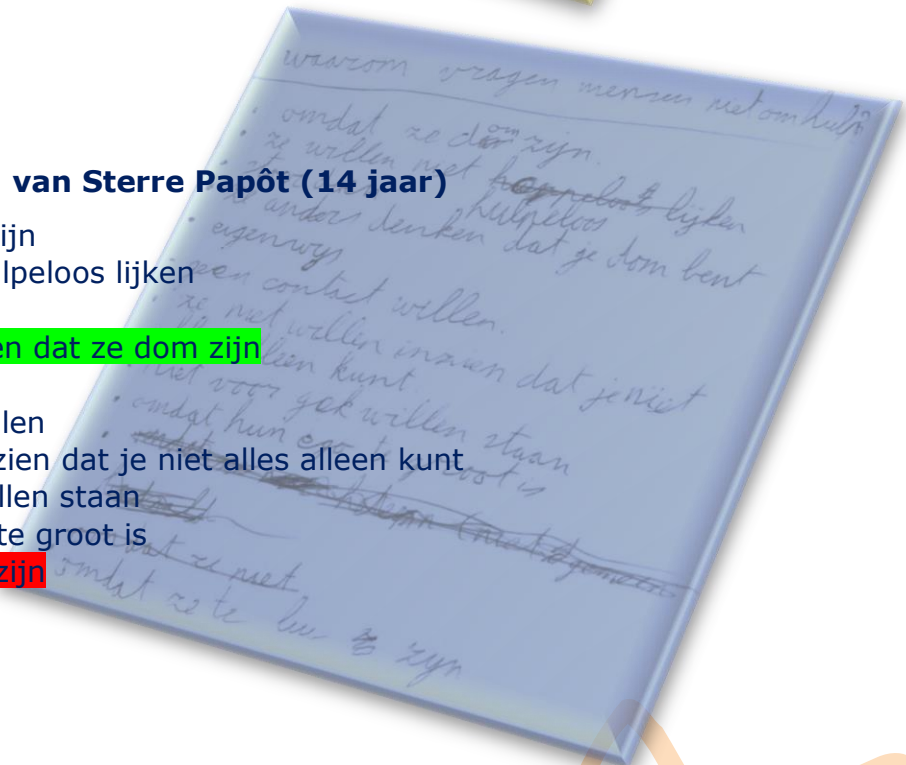 van Sterre Papôt (14 jaar)
ijn
lpeloos lijken
en dat ze dom zijn
len
zien dat je niet alles alleen kunt
llen staan
te groot is
zijn
waarom vragen mensen niet om hulp?
omdat ze dom om zijn.
ze willen niet hoppeloos lijken
hulpeloos
ze anders denken dat je dom bent
eigenwys
geen contact willen.
ze niet willen inzien dat je niet
alleen kunt.
niet voor gek willen staan
omdat hun ego te groot is
omdat ze niet
omdat ze te lui zyn